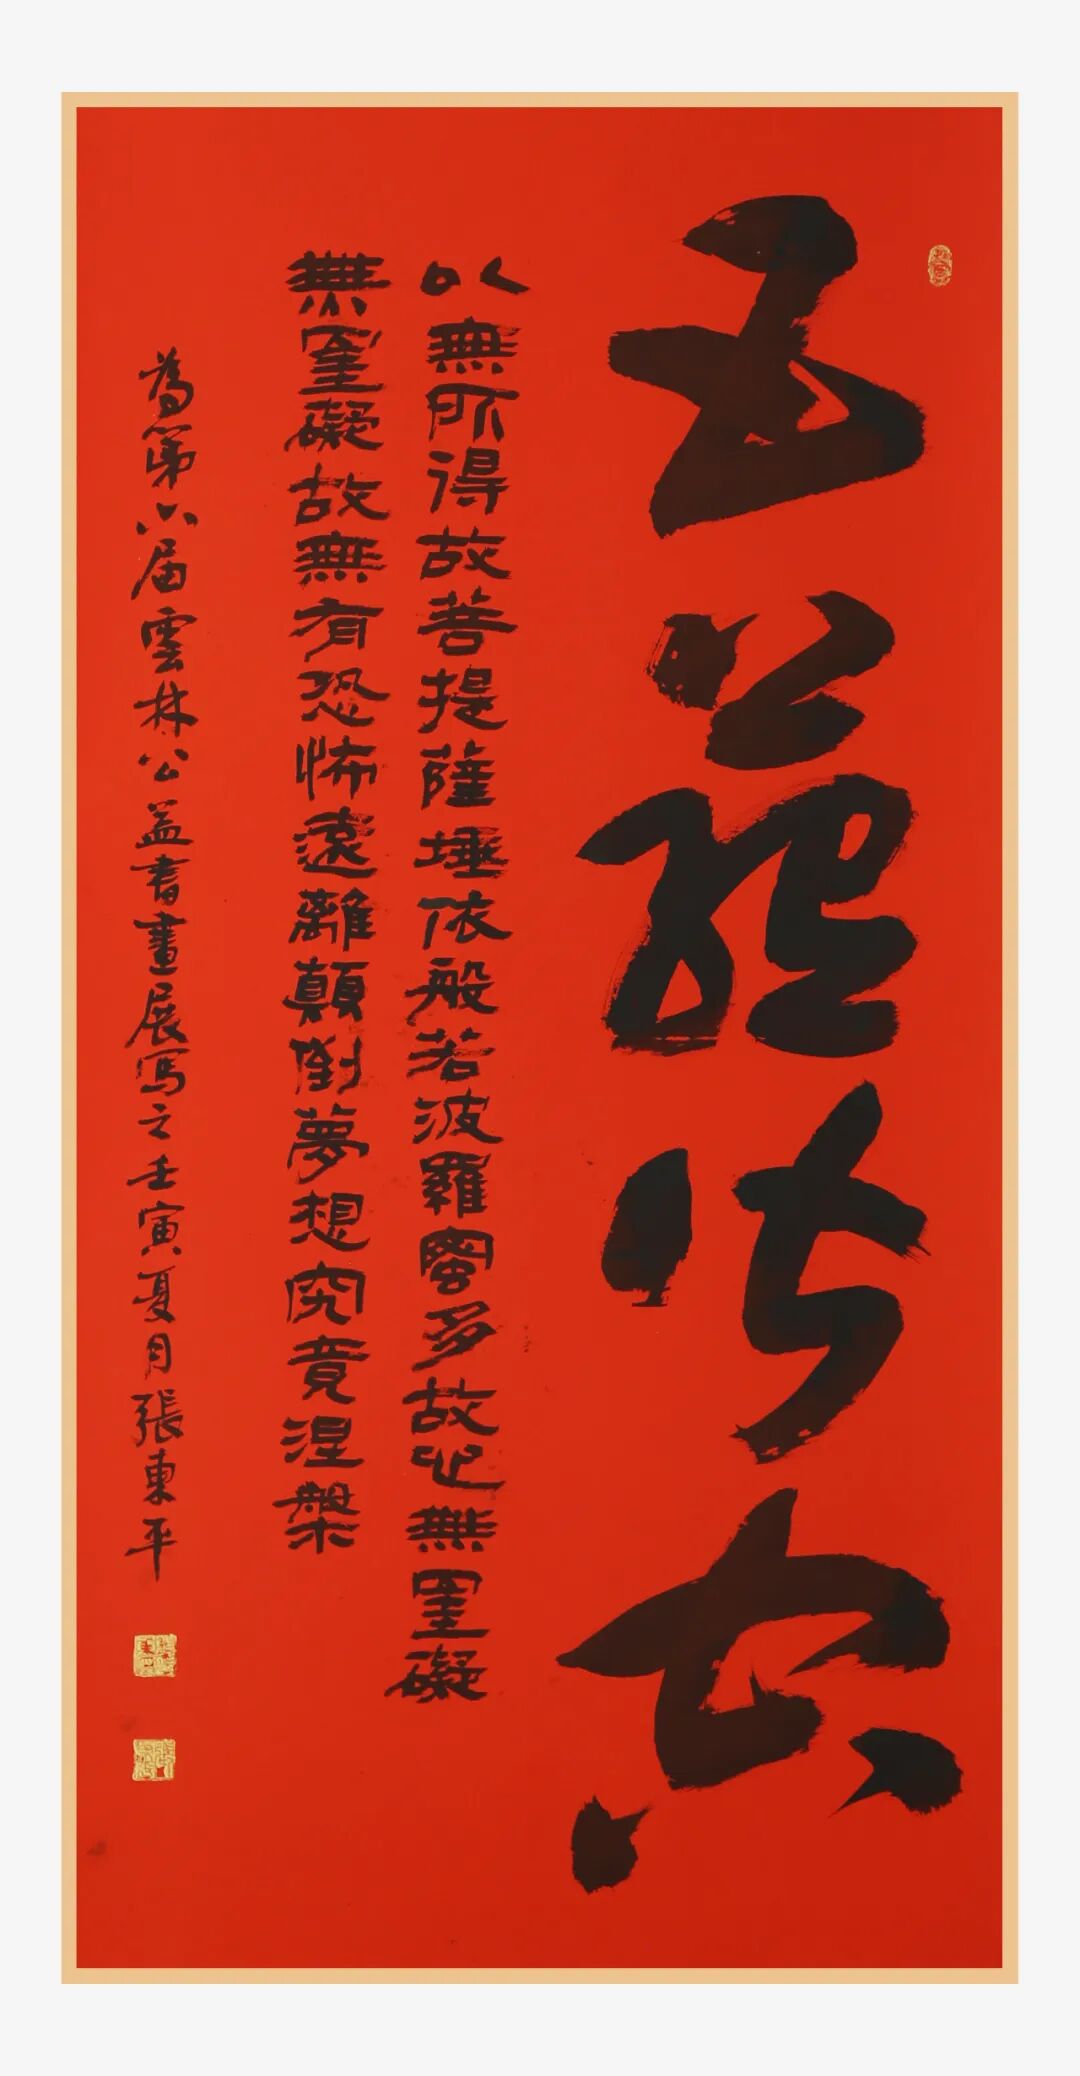 五蘊皆空
以無所得故菩提薩埵依般若波羅蜜多故心無罣礙
無罣礙故無有恐怖遠離顛倒夢想究竟涅槃
為第六届雲林公益書畫展寫之壬寅夏月張東平